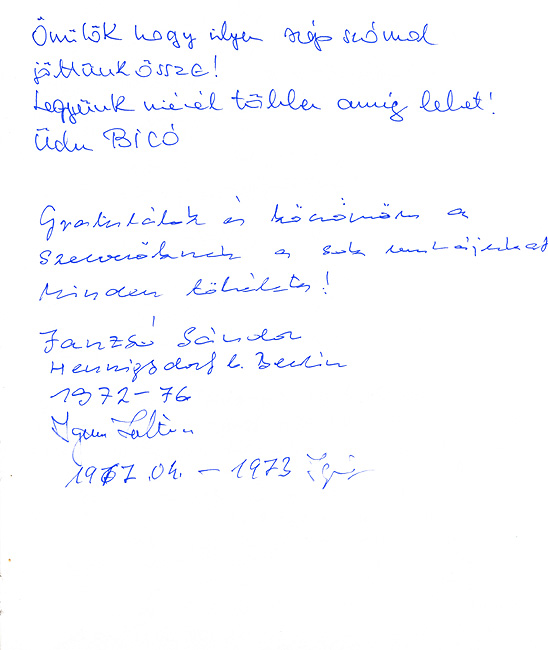 Örülök hogy ilyen szép számal
jöttünk össze!
Legyünk minél többen amig lehet!
Üdv BICÓ
Gratulálok és köszönöm a
szervezőknek a sok munkájukat
Minden tökéletes!
Janzsó Sándor
Hennigsdorf b. Berlin
1972-76
Zoltán
1967.04. - 1973